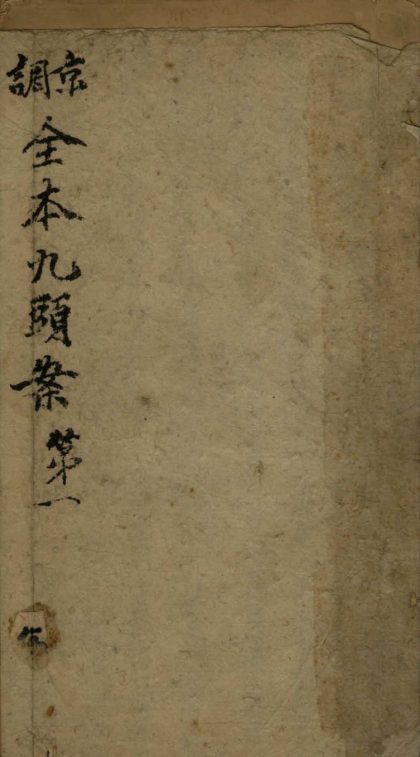 京調
全本九頭案
第一